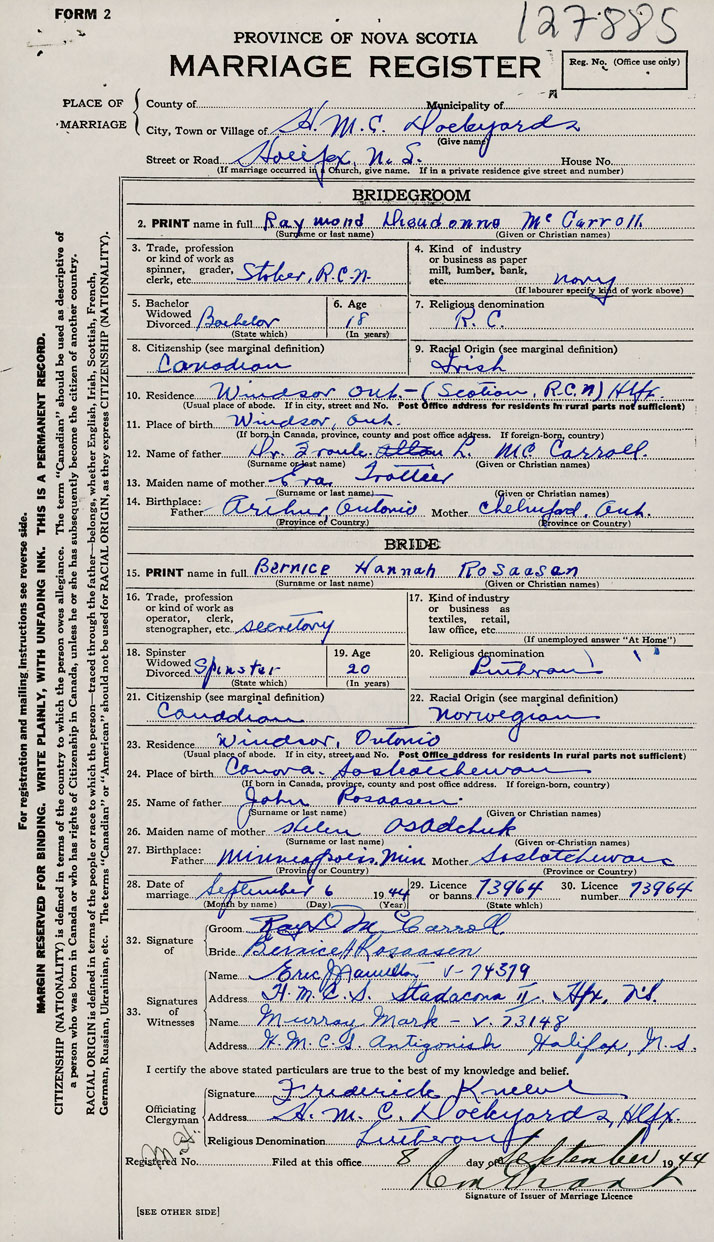 FORM 2
127885
PROVINCE OF NOVA SCOTIA
MARRIAGE REGISTER
Reg. No. (Office use only)
PLACE OF MARRIAGE
County of Municipality of
City, Town or Village of H. M. C. Dockyards
(Give name)
Street or Road Halifax, N. S. House No.
(If marriage occurred in a Church, give name. If in a private residence give street and number)
BRIDEGROOM
2. PRINT name in full Raymond Dieudonne McCarroll
(Surname or last name) (Given or Christian names)
3. Trade, profession or kind of work as spinner, grader, clerk, etc. Stoker, R.C.N.
4. Kind of industry or business as paper mill, lumber, bank, etc. navy
(If labourer specify kind of work above)
5. Bachelor Widowed Divorced Bachelor
(State which)
6. Age 18
(In years)
7. Religious denomination R. C.
8. Citizenship (see marginal definition) Canadian
9. Racial Origin (see marginal definition) Irish
10. Residence Windsor Ont. - (Scotian, R.C.N) Hlfx.
(Usual place of abode. If in city, street and No. Post Office address for residents in rural parts not sufficient)
11. Place of birth Windsor, Ont.
(If born in Canada, province, county and post office address. If foreign-born, country)
12. Name of father Dr. L. McCarroll
(Surname or last name) (Given or Christian names)
13. Maiden name of mother Eva Trottier
(Surname or last name) (Given or Christian names)
14. Birthplace: Father Arthur, Ontario Mother Chelmsford, Ont.
(Province of Country) (Province or Country)
BRIDE
15. PRINT name in full Bernice Hannah Rosaasen
(Surname or last name) (Given or Christian names)
16. Trade, profession or kind of work as operator, clerk, stenographer, etc. secretary
17. Kind of industry or business as textiles, retail, law office, etc.
(If unemployed answer "At Home")
18. Spinster Widowed Divorced Spinster
(State which)
19. Age 20
(In years)
20. Religious denomination Lutheran
21. Citizenship (see marginal definition) Canadian
22. Racial Origin (see marginal definition) Norwegian
23. Residence Windsor, Ontario
(Usual place of abode. If in city, street and No. Post Office address for residents in rural parts not sufficient)
24. Place of birth Canora - Saskatchewan
(If born in Canada, province, county and post office address. If foreign-born, country)
25. Name of father John Rosaasen
(Surname or last name) (Given or Christian names)
26. Maiden name of mother Helen Osadchuk
(Surname or last name) (Given or Christian names)
27. Birthplace: Father Minneapolis, Minn Mother Saskatchewan
(Province or Country) (Province or Country)
28. Date of marriage September 6 1944
(Month by name) (Day) (Year)
29. Licence or banns 73964
(State which)
30. Licence number 73964
32. Signature of
Groom Ray D McCarroll
Bride Bernice H Rosaasen
33. Signatures of Witnesses
Name Eric Hamilton V-74379
Address H. M. C. S. Stadacona II, Hfx, N.S.
Name Murray Mark - V. 73148
Address H. M. C. S. Antigonish Halifax, N. S.
I certify the above stated particulars are true to the best of my knowledge and belief.
Officiating Clergyman
Signature Frederick
Address H. M. C. Dockyards, Hlfx.
Religious Denomination Lutheran
Registered No. Filed at this office 8 day of September 1944
Signature of Issuer of Marriage Licence
[SEE OTHER SIDE]
For registration and mailing instructions see reverse side.
MARGIN RESERVED FOR BINDING. WRITE PLAINLY, WITH UNFADING INK. THIS IS A PERMANENT RECORD.
CITIZENSHIP (NATIONALITY) is defined in terms of the country to which the person owes allegiance. The term "Canadian" should be used as descriptive of
a person who was born in Canada or who has rights of Citizenship in Canada, unless he or she has subsequently become the citizen of another country.
RACIAL ORIGIN is defined in terms of the people or race to which the person—traced through the father—belongs, whether English, Irish, Scottish, French,
German, Russian, Ukrainian, etc. The terms "Canadian" or "American" should not be used for RACIAL ORIGIN, as they express CITIZENSHIP (NATIONALITY).